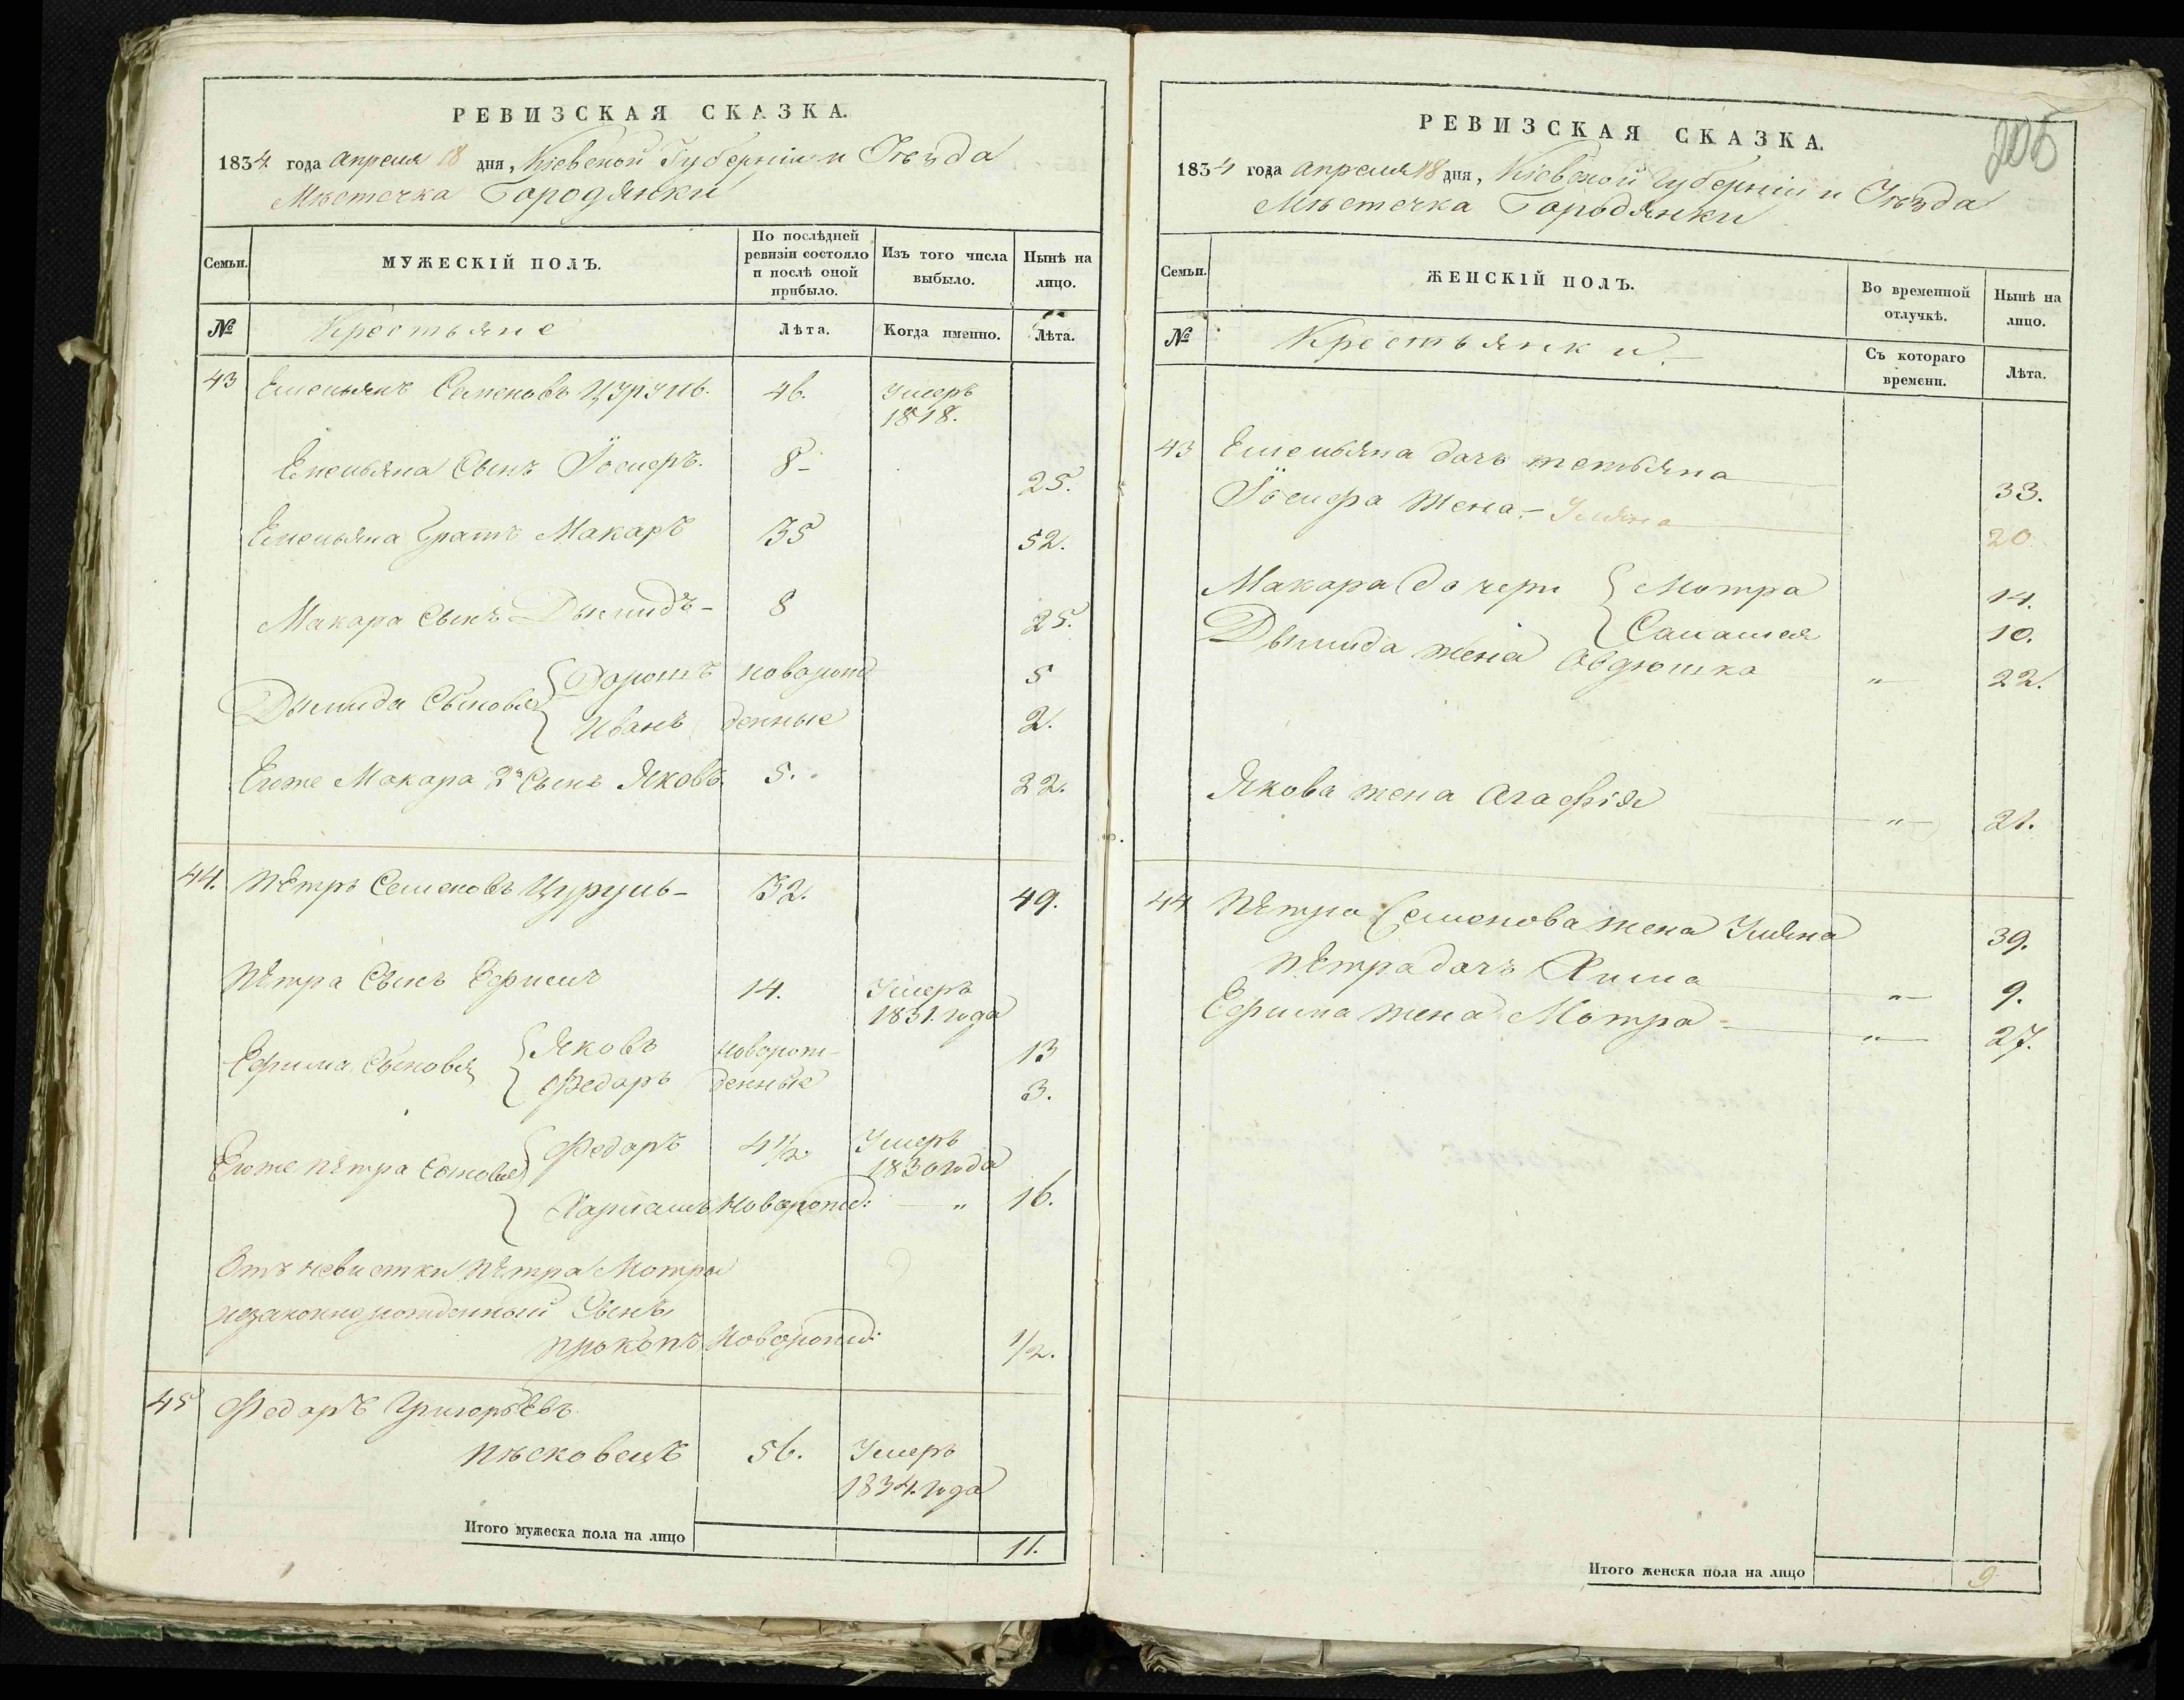 РЕВИЗСКАЯ СКАЗКА.
1834 года апреля 18 дня, Кіевской Губерніи и Уѣзда
Мѣстечка Городянки
Семьи.
МУЖЕСКІЙ ПОЛЪ.
По послѣдней ревизіи состояло и послѣ оной прибыло.
Изъ того числа выбыло.
Нынѣ на лицо.
№ Крестьяне Лѣта. Когда именно. Лѣта.
43 Емельянъ Семеновъ Цуруль. 46. Умеръ
1818.
Емельяна Сынъ Іосифъ. 8- 25.
Емельяна Братъ Макаръ 35 52.
Макара Сынъ Дымидъ- 8 25.
Дымида Сыновья Дорошъ новорож 5
Иванъ денные 2.
Егоже Макара 2й Сынъ Яковъ 5. 22.
44. Пѣтръ Семеновъ Цуруль- 32. 49.
Пѣтра Сынъ Ефимъ 14. Умеръ
1831. года
Ефима Сыновья Яковъ Новорож- 13
Федоръ денные 3.
Егоже Пѣтра Сыновья Федоръ 4 1/2. Умеръ
1830 года
Новорожд: — " 16.
Отъ невистки Пѣтра Мотры
незаконнорожденный Сынъ
Прокопъ Новорожд: 1/2.
45 Федоръ Григорьевъ
Пѣсковецъ 56. Умеръ
1834. года
Итого мужеска пола на лицо 11.
РЕВИЗСКАЯ СКАЗКА.
205
1834 года апреля 18 дня, Кіевской Губерніи и Уѣзда
Мѣстечка Городянки
Семьи.
ЖЕНСКІЙ ПОЛЪ.
Во временной отлучкѣ.
Нынѣ на лицо.
№ Крестьянки.- Съ котораго времени. Лѣта.
43 Емельяна дочь тетьяна 33.
Іосифа Жена- Уляна 20
Макара дочери Мотра 14.
10.
Дымида жена Овдюшка " 22.
Якова жена Агафія " 21.
44 Пѣтра Семенова жена Уляна 39.
Пѣтра дочь Хима " 9.
Ефима жена Мотра - " 27.
Итого женска пола на лицо 9